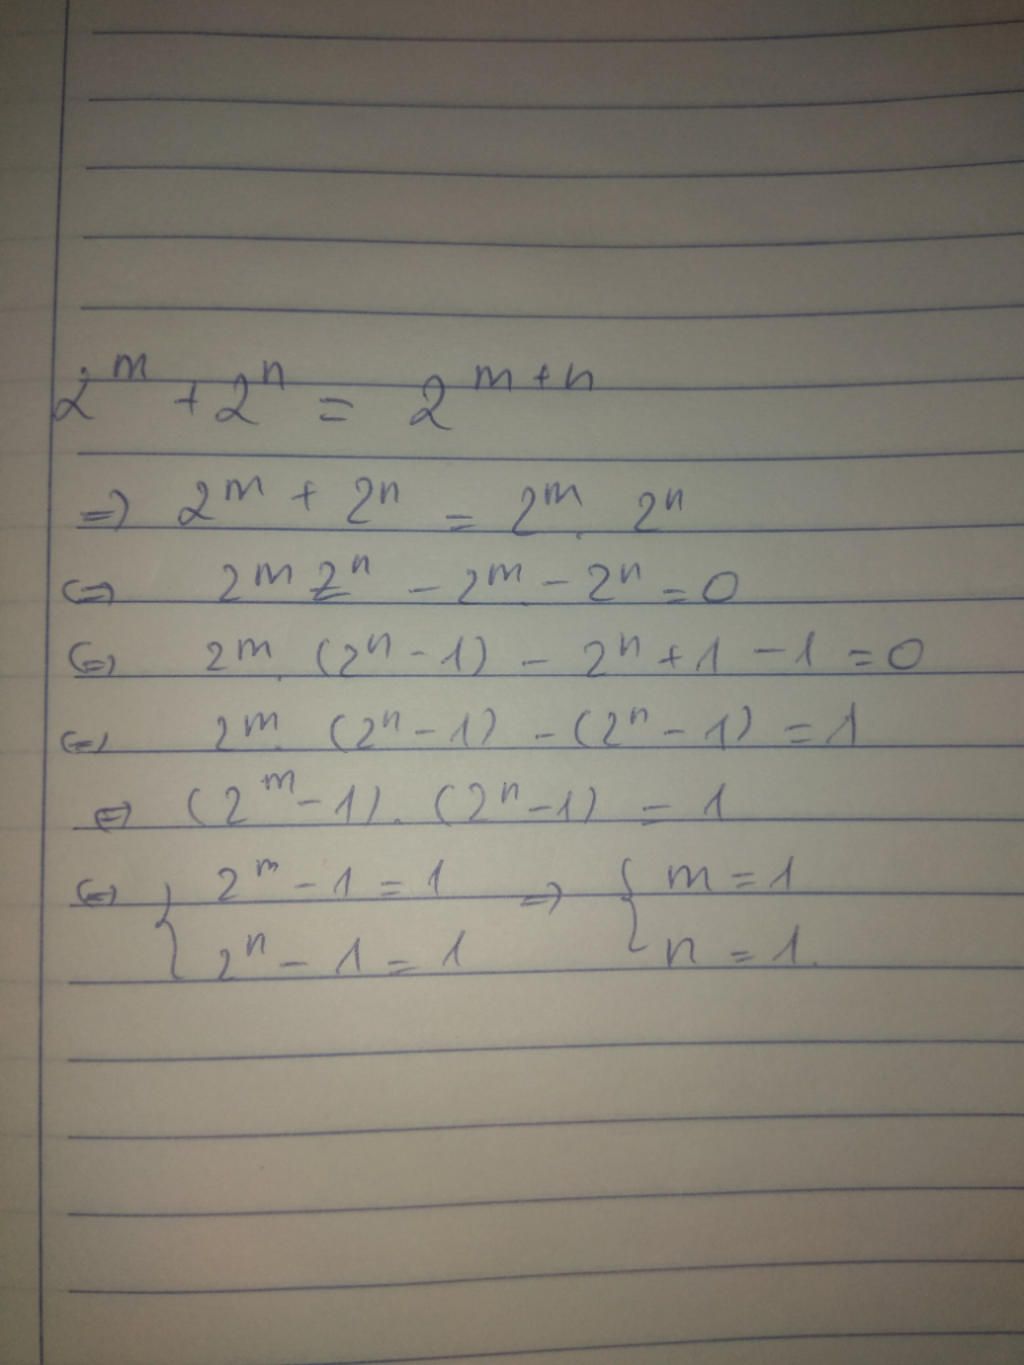 2^m + 2^n = 2^{m+n}
=) 2^m + 2^n = 2^m . 2^n
(=) 2^m 2^n - 2^m - 2^n = 0
(=) 2^m . (2^n - 1) - 2^n + 1 - 1 = 0
(=) 2^m . (2^n - 1) - (2^n - 1) = 1
=) (2^m - 1) . (2^n - 1) = 1
(=) { 2^m - 1 = 1 =) { m = 1
2^n - 1 = 1 n = 1.